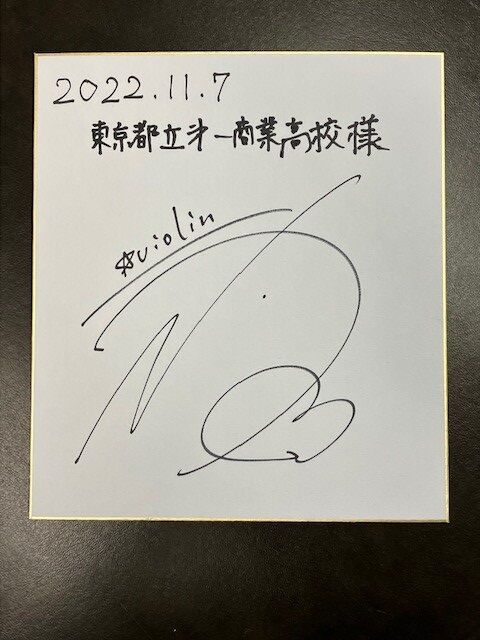 2022.11.7
東京都立㐧一商業高校様
☆violin